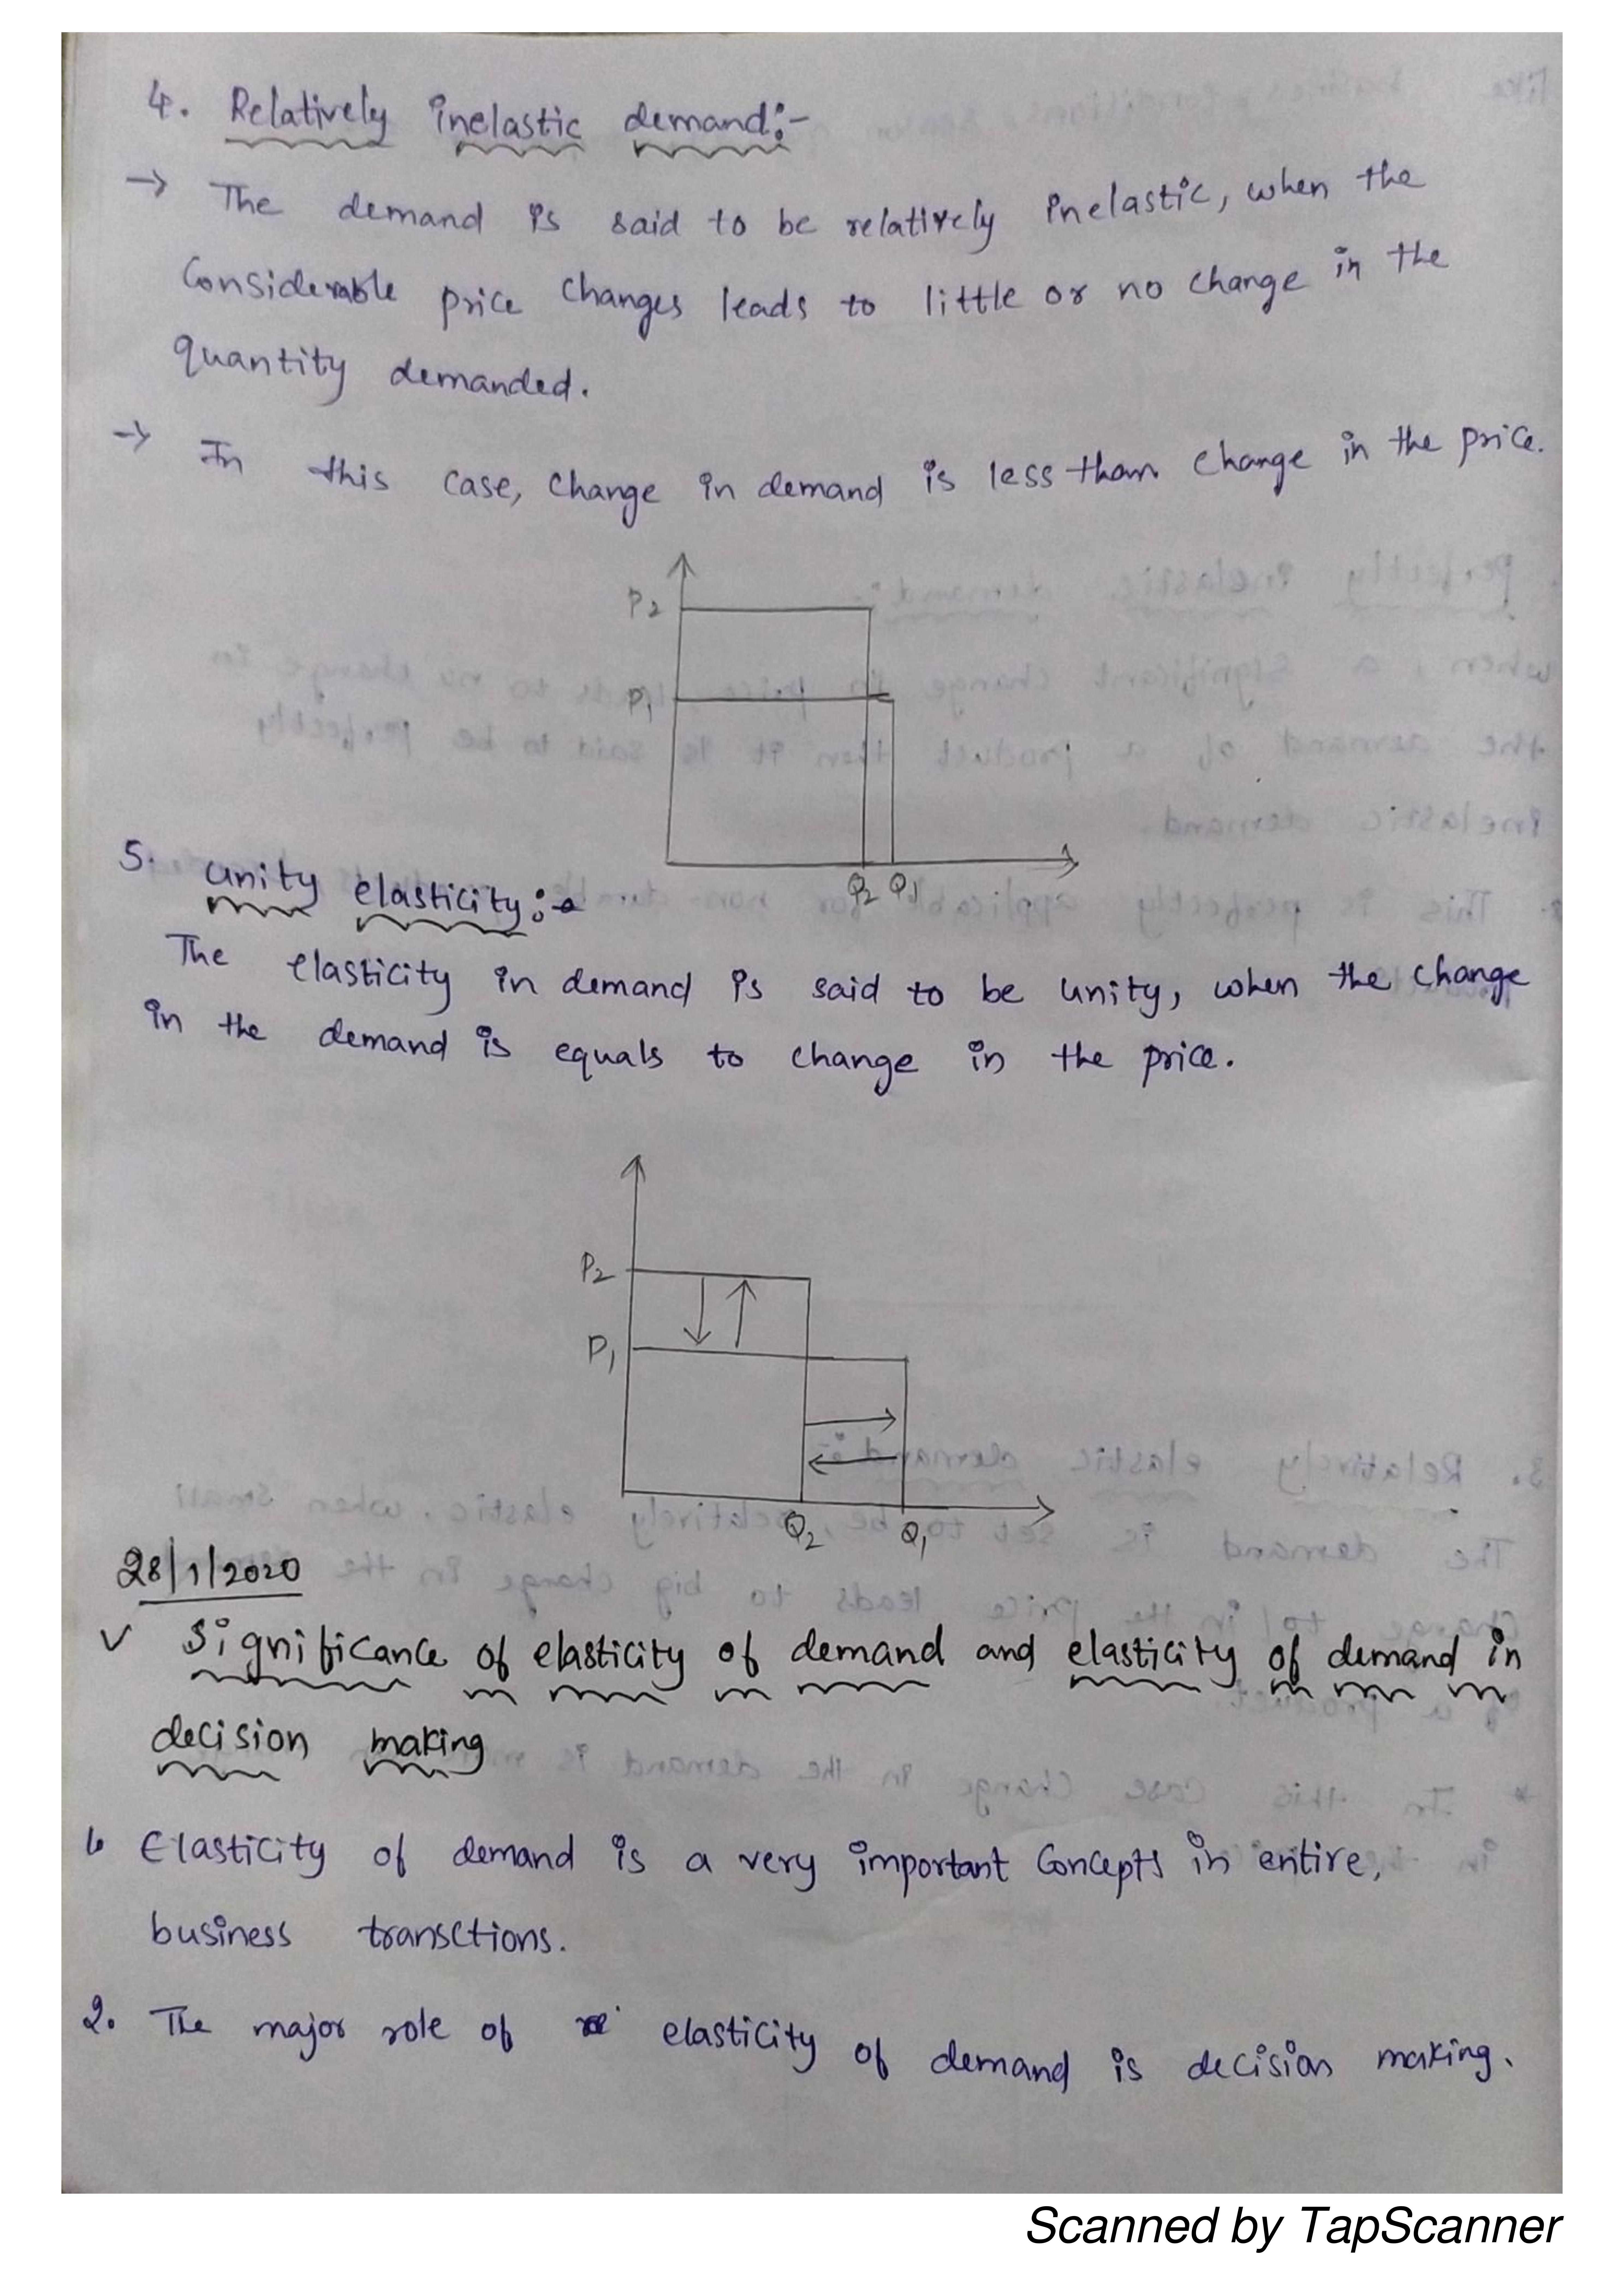 4. Relatively inelastic demand:-
→ The demand is said to be relatively inelastic, when the
Considerable price changes leads to little or no change in the
quantity demanded.
→ In this case, change in demand is less than change in the price.
P2
P1
Q2 Q1
5. unity elasticity:-
The elasticity in demand is said to be unity, when the change
in the demand is equals to change in the price.
P2
P1
Q2 Q1
28/1/2020
√ Significance of elasticity of demand and elasticity of demand in
decision making
1. Elasticity of demand is a very important Concepts in entire,
business transctions.
2. The major role of elasticity of demand is decision making.
Scanned by TapScanner